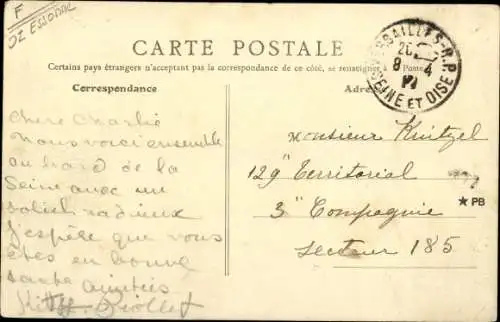 F
OZ ESSONNE
CARTE POSTALE
Certains pays étrangers n'acceptant pas la correspondance de ce côté, se renseigner à la Poste
Correspondance
Adresse
VERSAILLES - R.P.
20
8 - 4
SEINE ET OISE
Chere Charlie
Nous voici ensemble
au bord de la
Seine avec un
soleil radieux
J'espère que vous
êtes en bonne
santé amitiés
Kitty Violley
Monsieur Knitzel
129" Territorial
3" Compagnie
secteur 185
★ PB